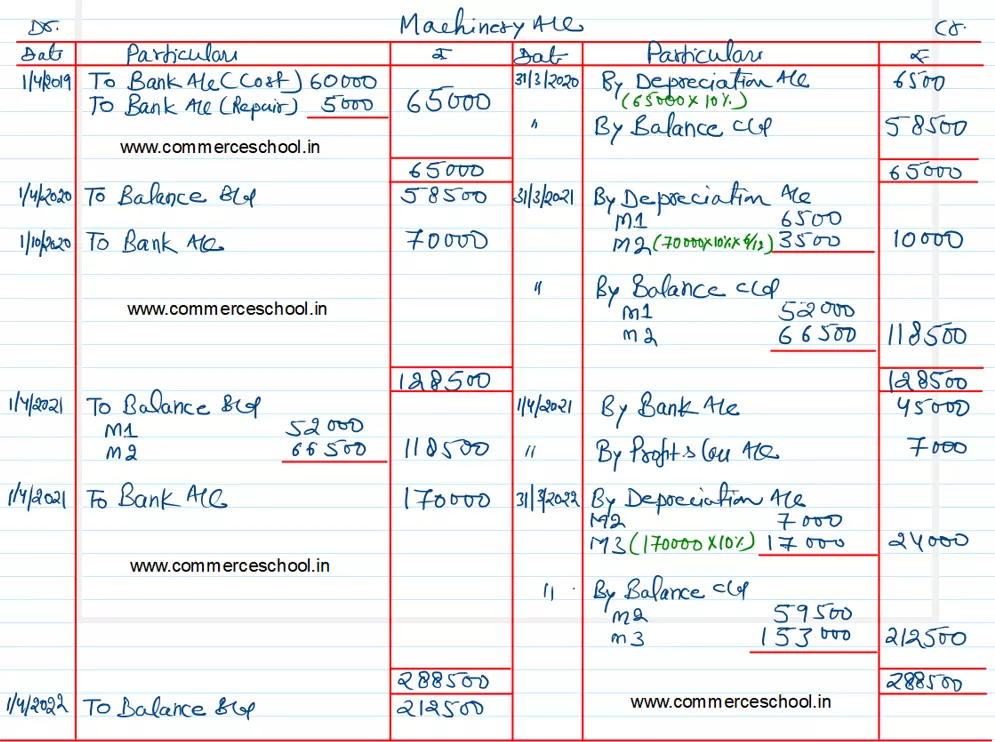 Dr. Machinery A/c Cr.
Date Particulars ₹ Date Particulars ₹
1/4/2019 To Bank A/c (Cost) 60000 31/3/2020 By Depreciation A/c 6500
To Bank A/c (Repair) 5000 65000 (65000 x 10%)
" By Balance c/d 58500
www.commerceschool.in
65000 65000
1/4/2020 To Balance B/d 58500 31/3/2021 By Depreciation A/c
M1 6500
1/10/2020 To Bank A/c 70000 M2 (70000x10%x6/12) 3500 10000
" By Balance c/d
www.commerceschool.in M1 52000
M2 66500 118500
128500 128500
1/4/2021 To Balance B/d 1/4/2021 By Bank A/c 45000
M1 52000
M2 66500 118500 " By Profit & Loss A/c 7000
1/4/2021 To Bank A/c 170000 31/3/2022 By Depreciation A/c
M2 7000
M3 (170000 x 10%) 17000 24000
www.commerceschool.in
" By Balance c/d
M2 59500
M3 153000 212500
288500 288500
1/4/2022 To Balance B/d 212500 www.commerceschool.in